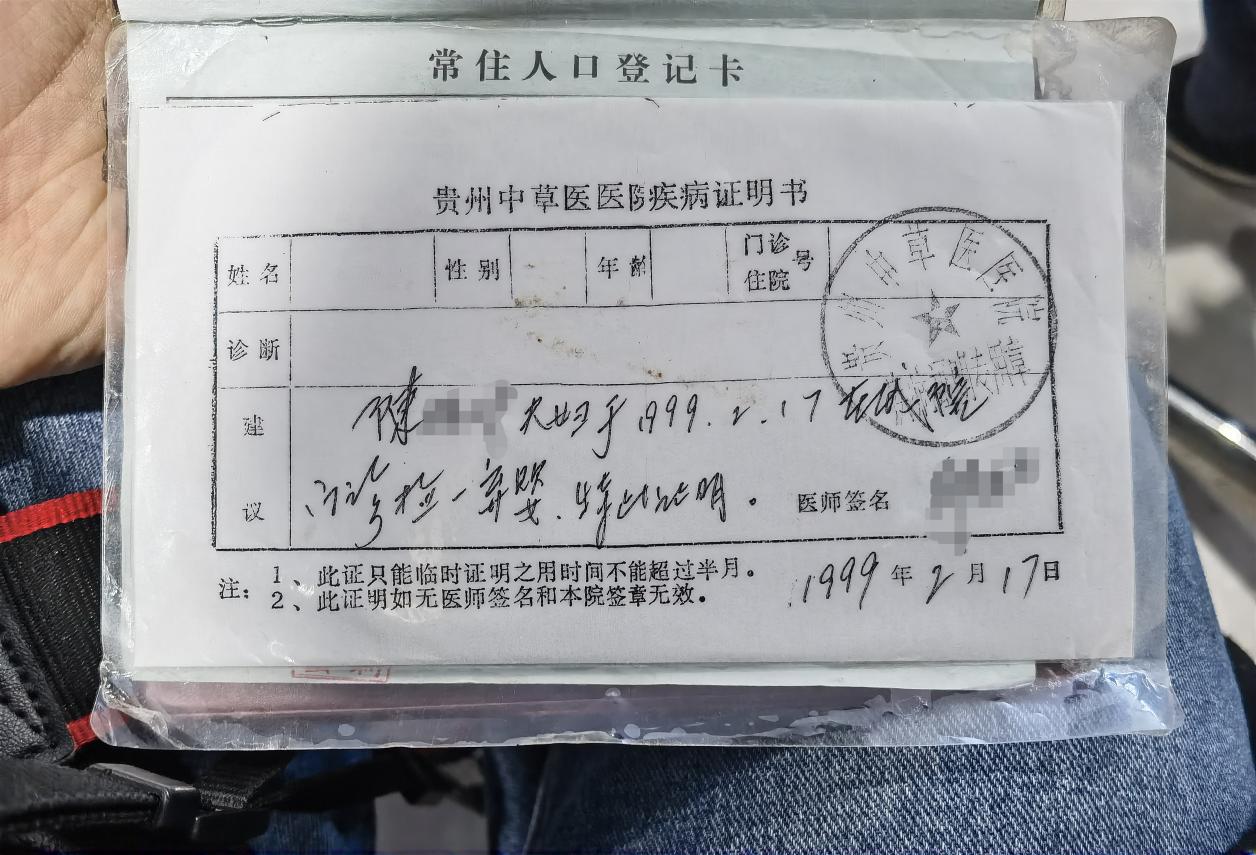 常住人口登记卡
贵州中草医医院疾病证明书
姓名 性别 年龄 门诊 住院 号
贵州中草医医院
诊断
建议
陈 夫妇于1999.2.17在我院
门诊检一弃婴.特此证明。 医师签名
注: 1、此证只能临时证明之用时间不能超过半月。
2、此证明如无医师签名和本院签章无效。
1999年2月17日